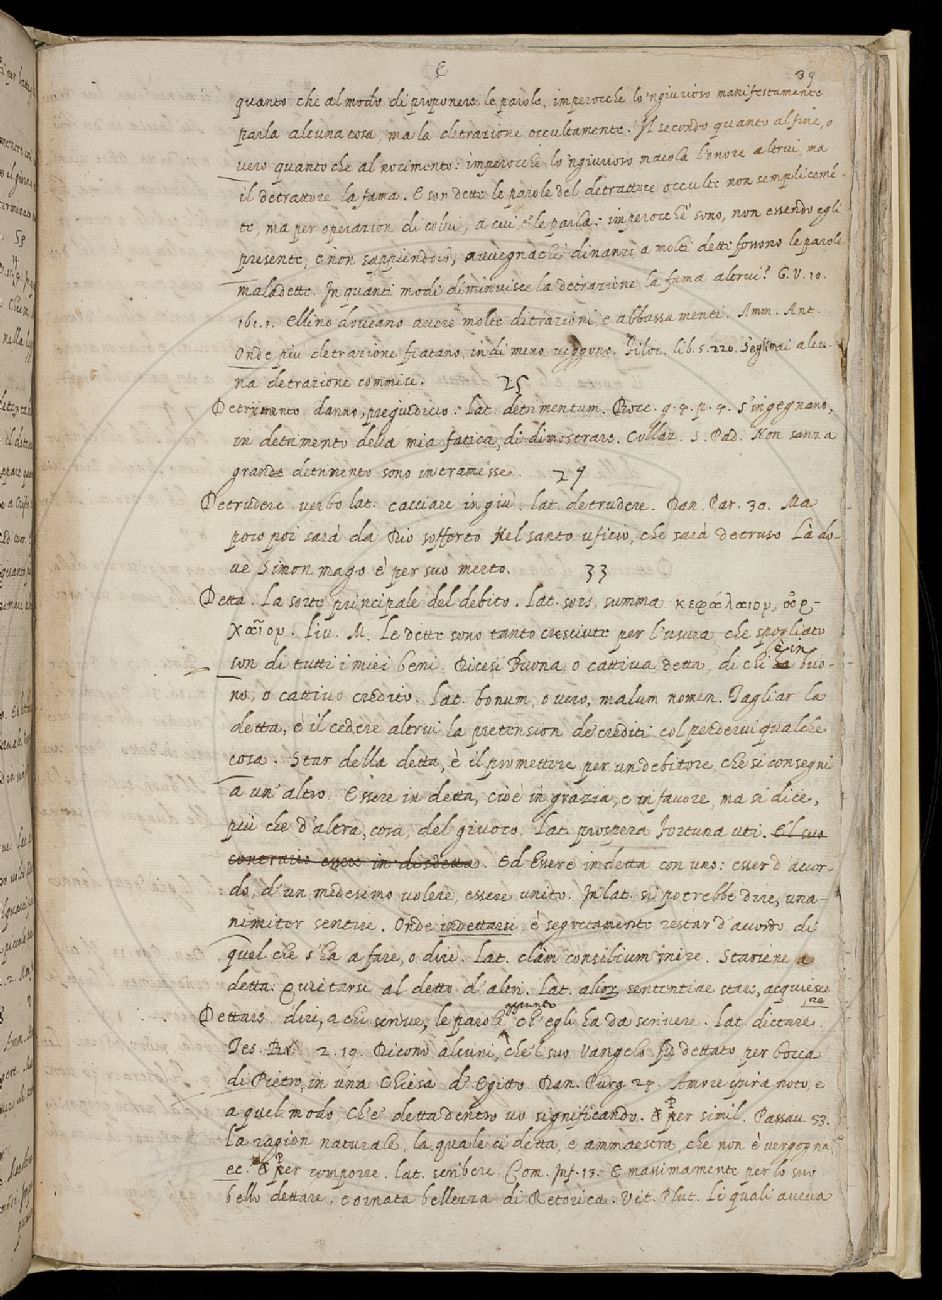 E 39
quanto che al modo di proponere le parole, imperocchè lo 'ngiurioso manifestamente
parla alcuna cosa, ma la detrazione occultamente. Il secondo quanto al fine, o
vero quanto che al nocimento: imperocchè lo 'ngiurioso macola l'onore altrui, ma
il detrattore la fama. E son dette le parole del detrattore occulte non semplicemē-
te, ma per operazion di colui, a cui e' le parla: imperocchè sono, non essendo egli
presente, e non sappiendolo, avvegnachè dinanzi a molti detti fossono le parole
maladette. In quanti modi diminuisce la detrazione la fama altrui? G. V. 10.
161. 1. Ellino doveano avere molte ditrazioni e abbassamenti. Amm. Ant.
Onde più detrazione fiatano, indi meno veggono. Filoc. lib. 5. 220. Seghonai alcu-
na detrazione commise. 25
Detrimento danno, pregiudicio: lat. detrimentum. Bocc. g. 4. p. 4. S'ingegnano,
in detrimento della mia fatica, di dimostrare. Collaz. S. Pad. Non sanza
grande detrimento sono intramesse. 27
Detrudere verbo lat. cacciare in giù. lat. detrudere. Dan. Par. 30. Ma
poco poi sarà da Dio sofferto Nel santo uficio, che sarà detruso Là do-
ve Simon mago è per suo merto. 33
Detta. La sorte principale del debito. Lat. sors, summa κεφάλαιον, ἀρ-
χαῖον. Liv. M. Le dette sono tanto cresciute per l'usura che spogliato
son di tutti i miei beni. Dicesi Buona, o cattiva detta, di chi è in buo-
no, o cattivo credito. lat. bonum, o vero, malum nomen. Tagliar la
detta, è il cedere altrui la pretension de' crediti col perdervi qualche
cosa. Star della detta, è il promettere per un debitore, che si consegni
a un' altro. Essere in detta, cioè in grazia, e in favore, ma si dice,
più che d'altra cosa, del givoco. lat. prospera fortuna uti. E 'l suo
contrario essere in disdetta. Ed Essere in detta con uno: esser d'accor-
do, d'un medesimo volere, essere unito. In lat. si potrebbe dire, una-
nimiter sentire. Onde indettarsi è segretamente restar d'accordo di
quel che s'ha a fare, o dire. Lat. clam consilium inire. Starsene a
detta: Quietarsi al detto d'altri. Lat. sententiae stare, acquiesce
re
Dettare dire, a chi scrive, le parole appunto ch' egli ha da scrivere. Lat. dictare.
Tes. Br. 2. 19. Dicono alcuni, che 'l suo Vangelo fu dettato per bocca
di Pietro, in una Chiesa d' Egitto. Dan. Purg. 24. Amore spira noto, e
a quel modo Che detta dentro vo significando. ¶ per simil. Passav. 53.
La ragion naturale, la quale ci detta, e ammaestra, che non è vergogna
ec. ¶ per comporre. lat. scribere. Com. Inf. 13. E massimamente per lo suo
bello dettare, e ornata bellezza di Retorica. Vit. Plut. Li quali aveva